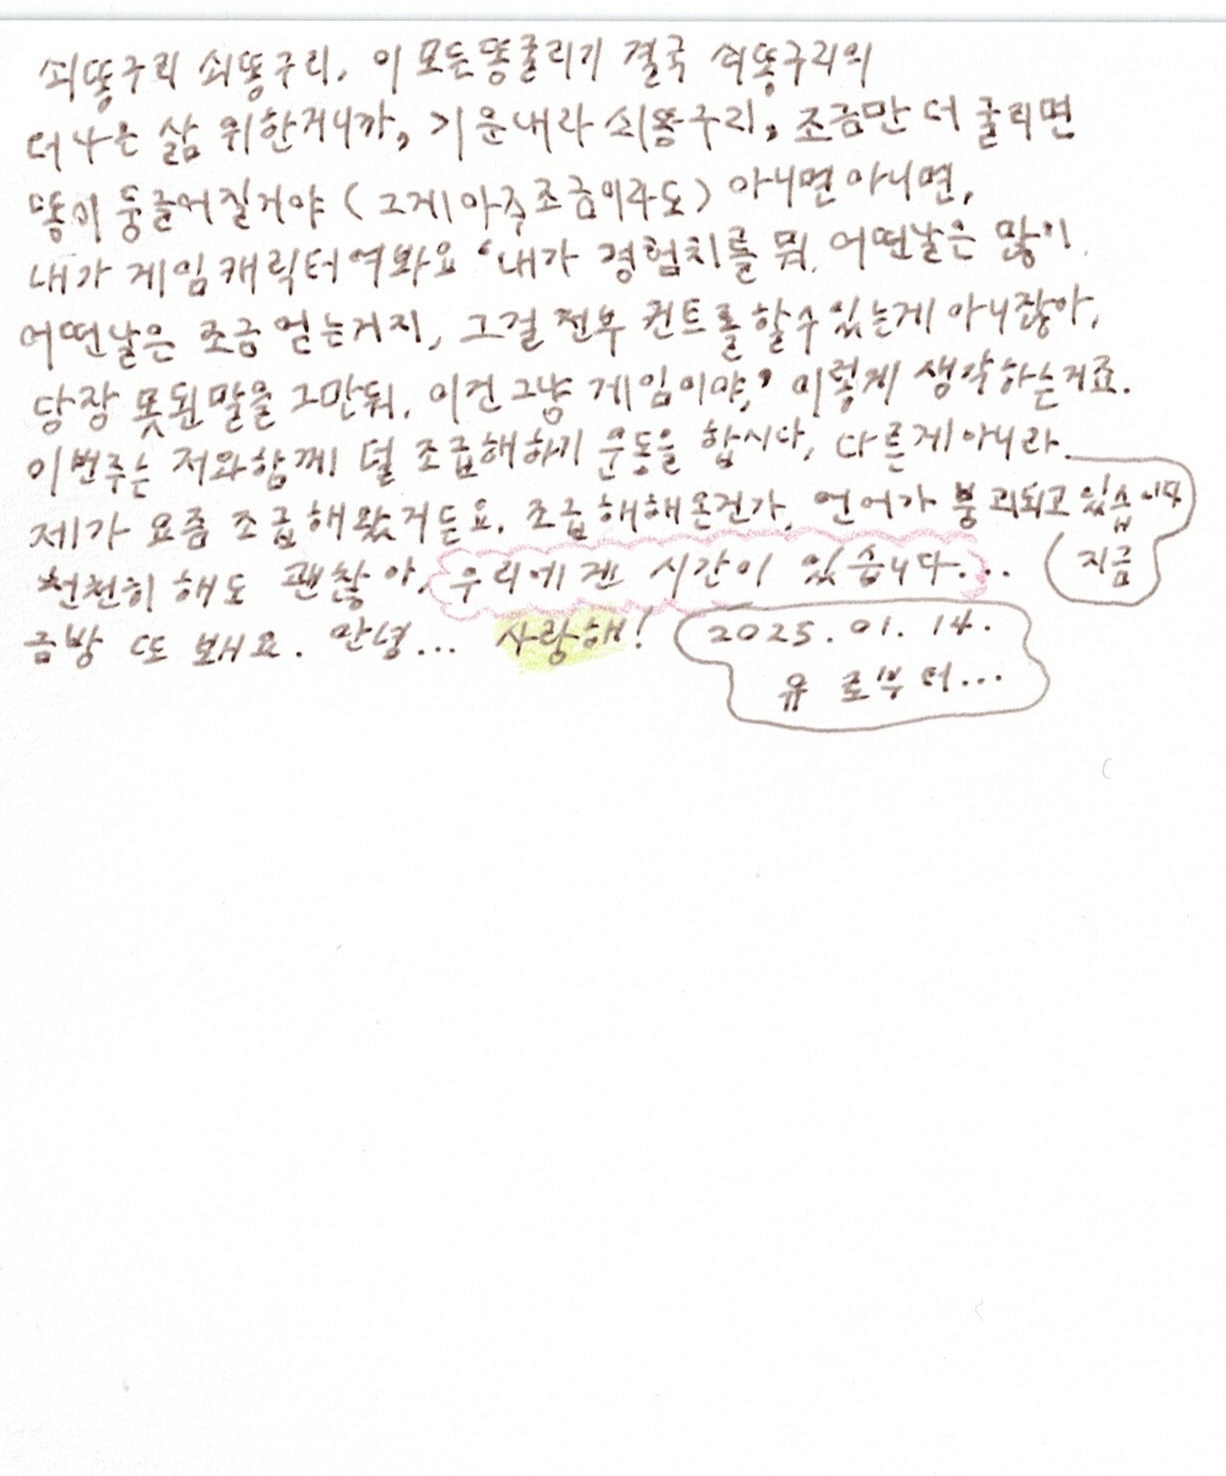 쇠똥구리 쇠똥구리, 이 모든 똥굴리기 결국 쇠똥구리의
더 나은 삶 위한거니까, 기운내라 쇠똥구리, 조금만 더 굴리면
똥이 둥글어질거야 (그게 아주 조금이라도) 아니면 아니면,
내가 게임 캐릭터여봐요 '내가 경험치를 뭐, 어떤날은 많이
어떤날은 조금 얻는거지, 그걸 전부 컨트롤 할 수 있는게 아니잖아,
당장 못된 말을 그만둬, 이건 그냥 게임이야,' 이렇게 생각하는거죠.
이번주는 저와함께 덜 조급해하기 운동을 합시다, 다른게 아니라
제가 요즘 조급해왔거든요, 조급해해온건가, 언어가 붕괴되고 있습니다
지금
천천히 해도 괜찮아, 우리에겐 시간이 있습니다...
금방 또 봬요. 안녕... 사랑해!
2025.01.14.
유 로부터...